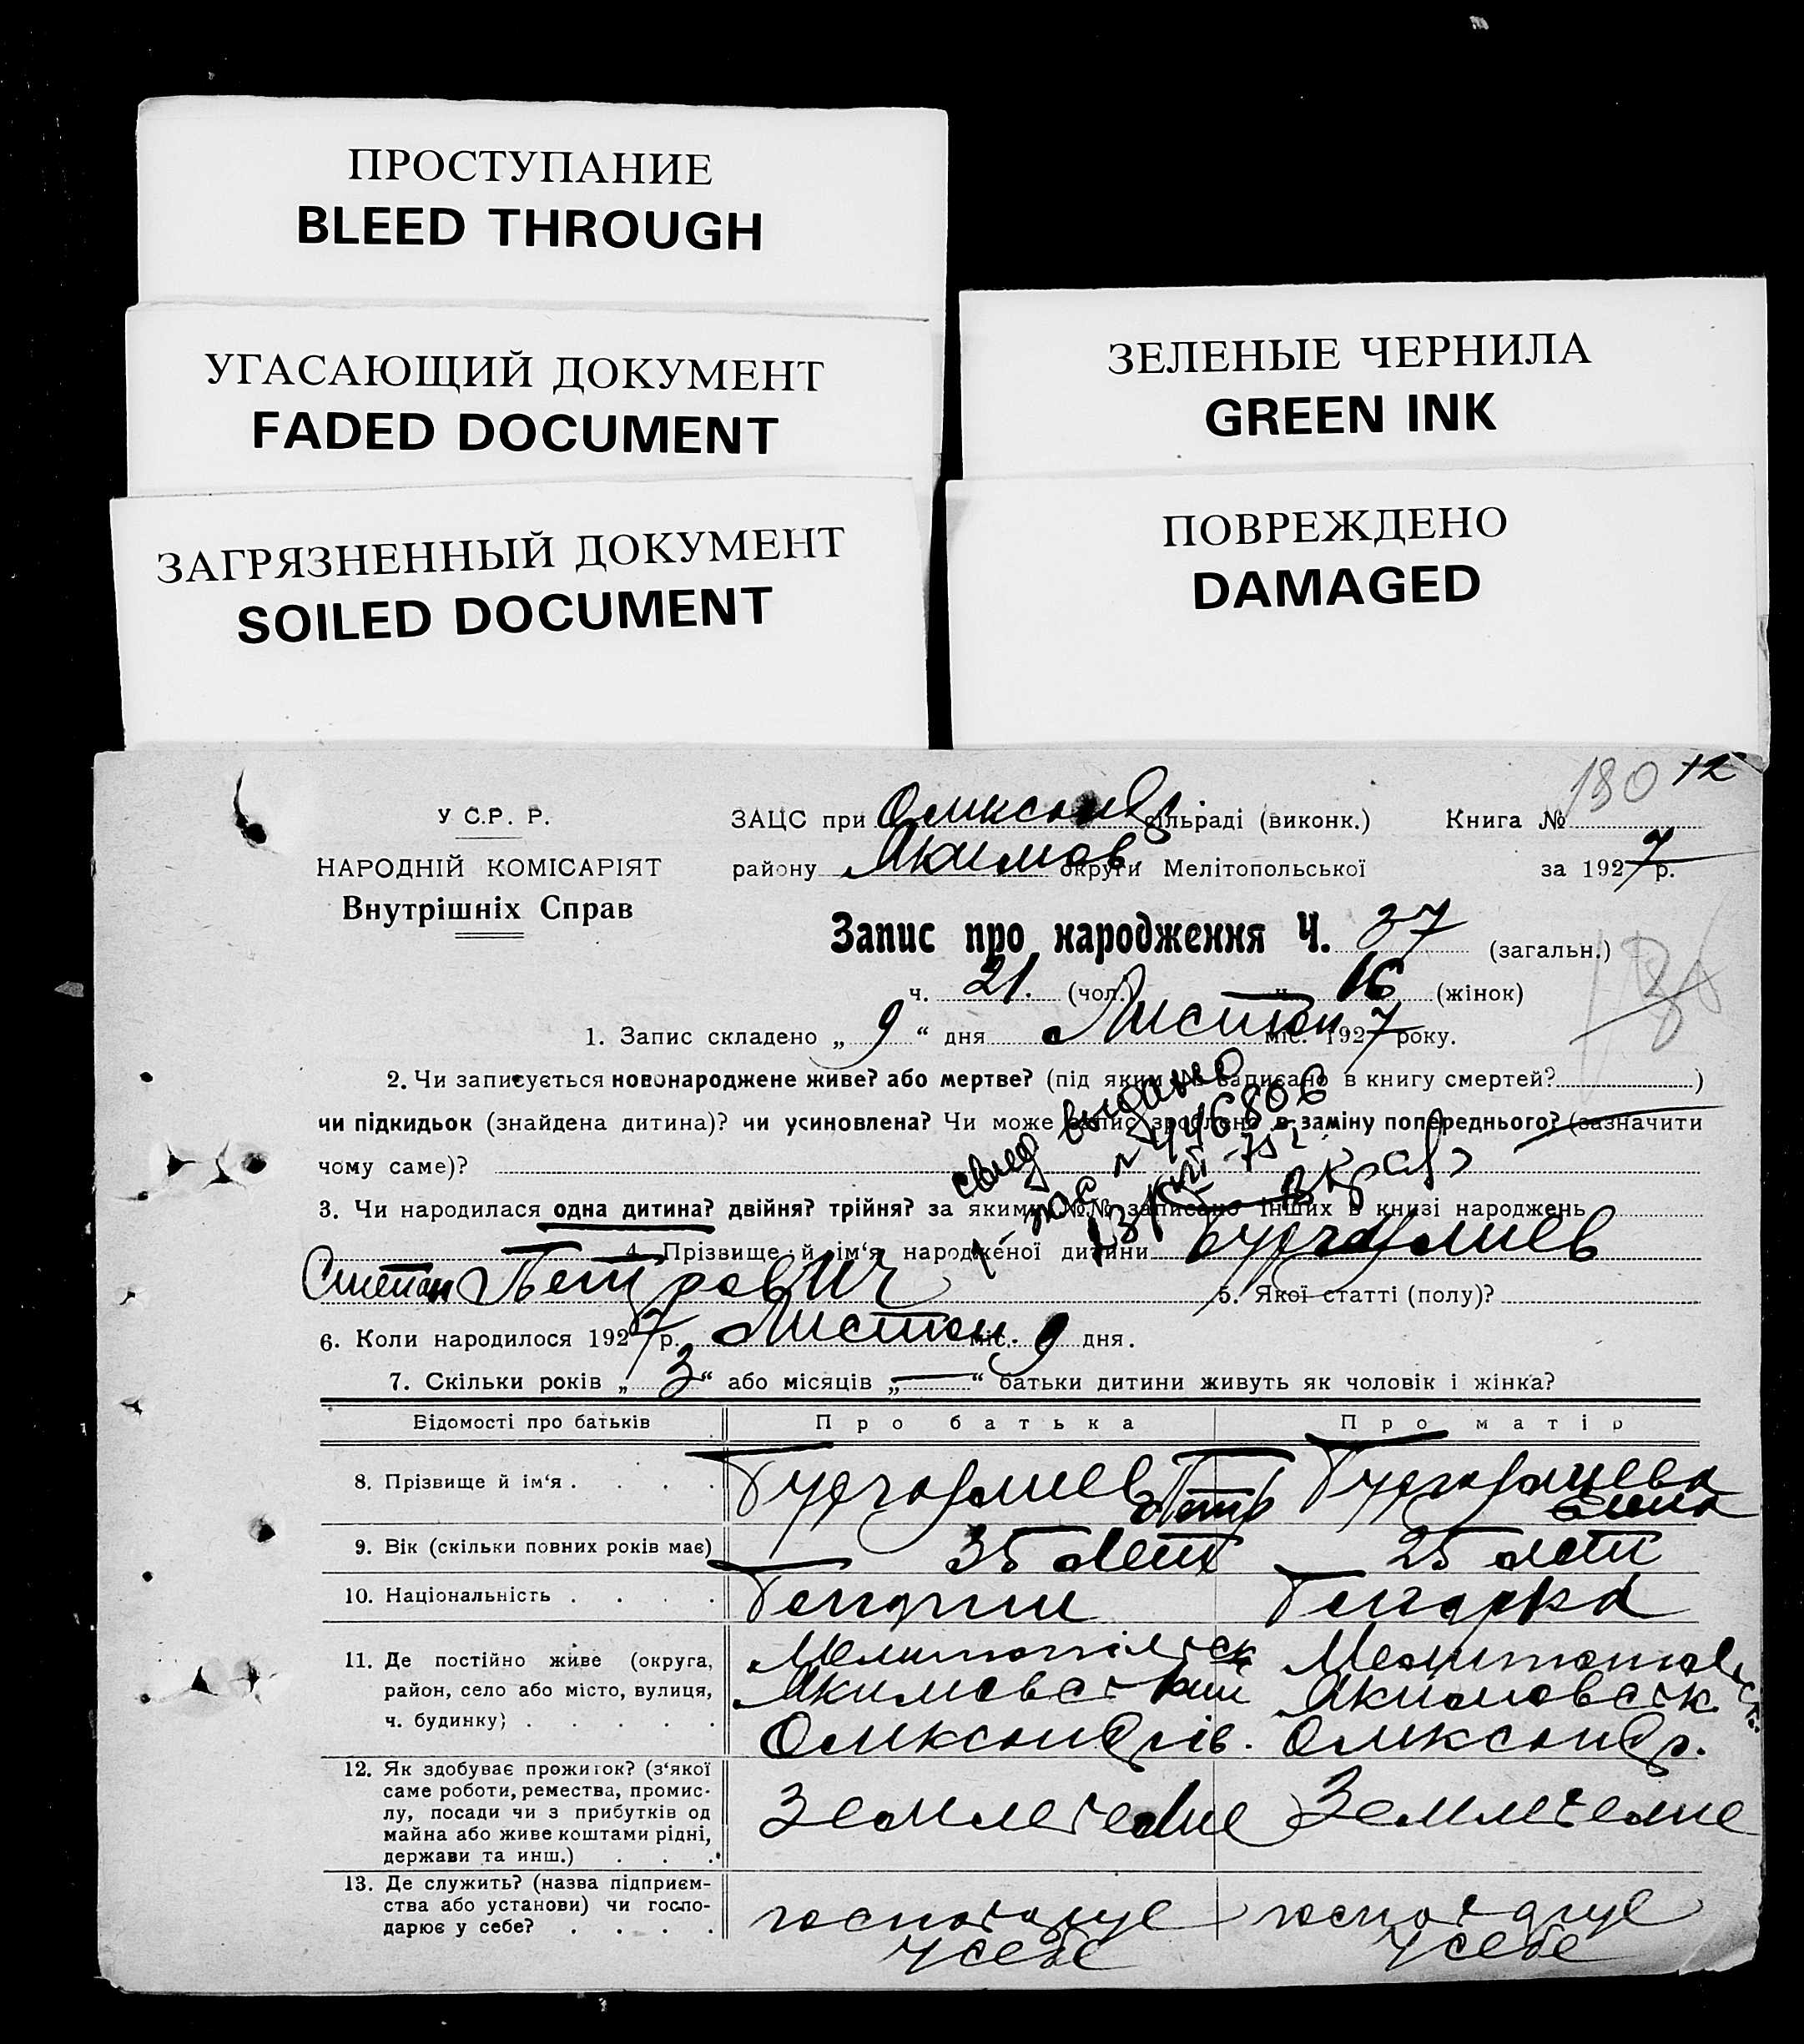 ПРОСТУПАНИЕ
BLEED THROUGH
УГАСАЮЩИЙ ДОКУМЕНТ
FADED DOCUMENT
ЗАГРЯЗНЕННЫЙ ДОКУМЕНТ
SOILED DOCUMENT
ЗЕЛЕНЫЕ ЧЕРНИЛА
GREEN INK
ПОВРЕЖДЕНО
DAMAGED
190 12
У С.Р. Р.
НАРОДНІЙ КОМІСАРІЯТ
Внутрішніх Справ
ЗАЦС при Олександр сільраді (виконк.) Книга №
району Якимов. округи Мелітопольської за 1927 р.
Запис про народження Ч. 37 (загальн.)
ч. 21. (чол.) ч. 16 (жінок)
1. Запис складено „ 9 “ дня Листоп. міс. 1927 року.
2. Чи записується новонароджене живе? або мертве? (під яким № записано в книгу смертей? )
чи підкидьок (знайдена дитина)? чи усиновлена? Чи може запис зроблено в заміну попереднього? (зазначити
чому саме)?
свид выдано
446806
3. Чи народилася одна дитина? двійня? трійня? за якими №№ записано інших в книзі народжень
4. Прізвище й ім‘я народженої дитини
Степан Петрович 5. Якої статті (полу)?
6. Коли народилося 1927 р. Листоп міс. 9 дня.
7. Скільки років „ 3 “ або місяців „ — “ батьки дитини живуть як чоловік і жінка?
Відомості про батьків Про батька Про матір
8. Прізвище й ім‘я . . . . Петр
9. Вік (скільки повних років має) 35 лет 25 лет
10. Національність . . . .
11. Де постійно живе (округа,
район, село або місто, вулиця,
ч. будинку) . . . . .
Мелитопільск Мелитопольск.
Якимовський Якимовськ.
Олександрів. Олександр.
12. Як здобуває прожиток? (з‘якої
саме роботи, ремества, промис-
лу, посади чи з прибутків од
майна або живе коштами рідні,
держави та инш.) . . .
Земледелие Земледелие
13. Де служить? (назва підприєм-
ства або установи) чи госпо-
дарює у себе? . . . .
господарує господарує
у себе у себе